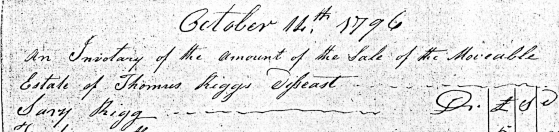 October 14th 1796
An Invotary of the amount of the Sale of the Moveable
Estate of Thomas Riggs Diseast
Rigg Dr. £ S D